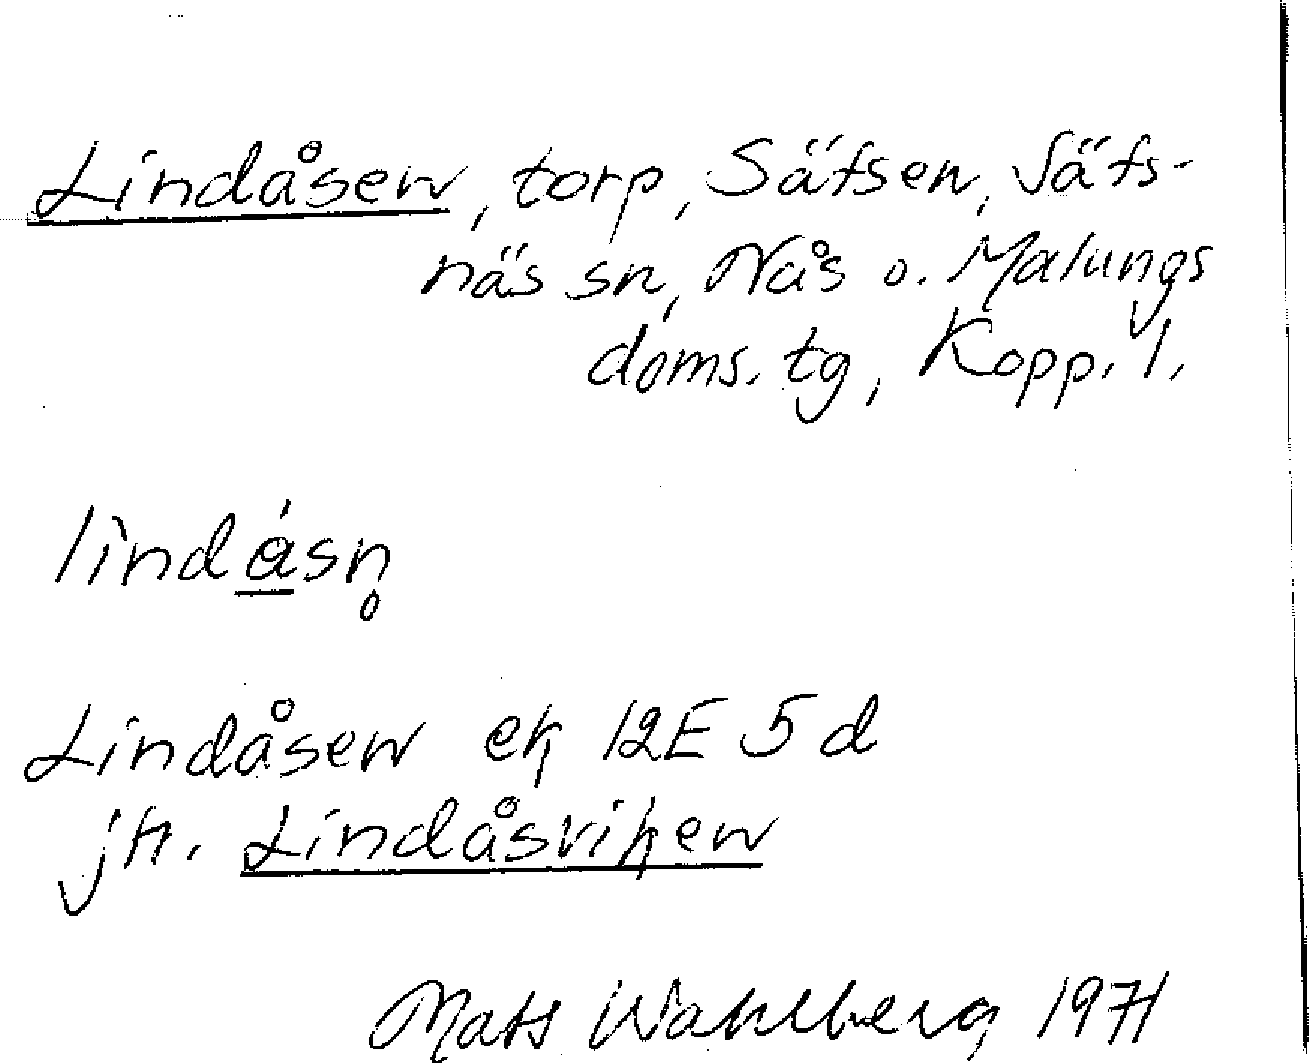 Lindåsen, torp, Säfsen, Säfs-
näs sn, Nås o. Malungs
doms. tg, Kopp. l.
lìndåsn̥
Lindåsen ek 12E 5d
jfr. Lindåsviken
Mats Wahlberg 1971